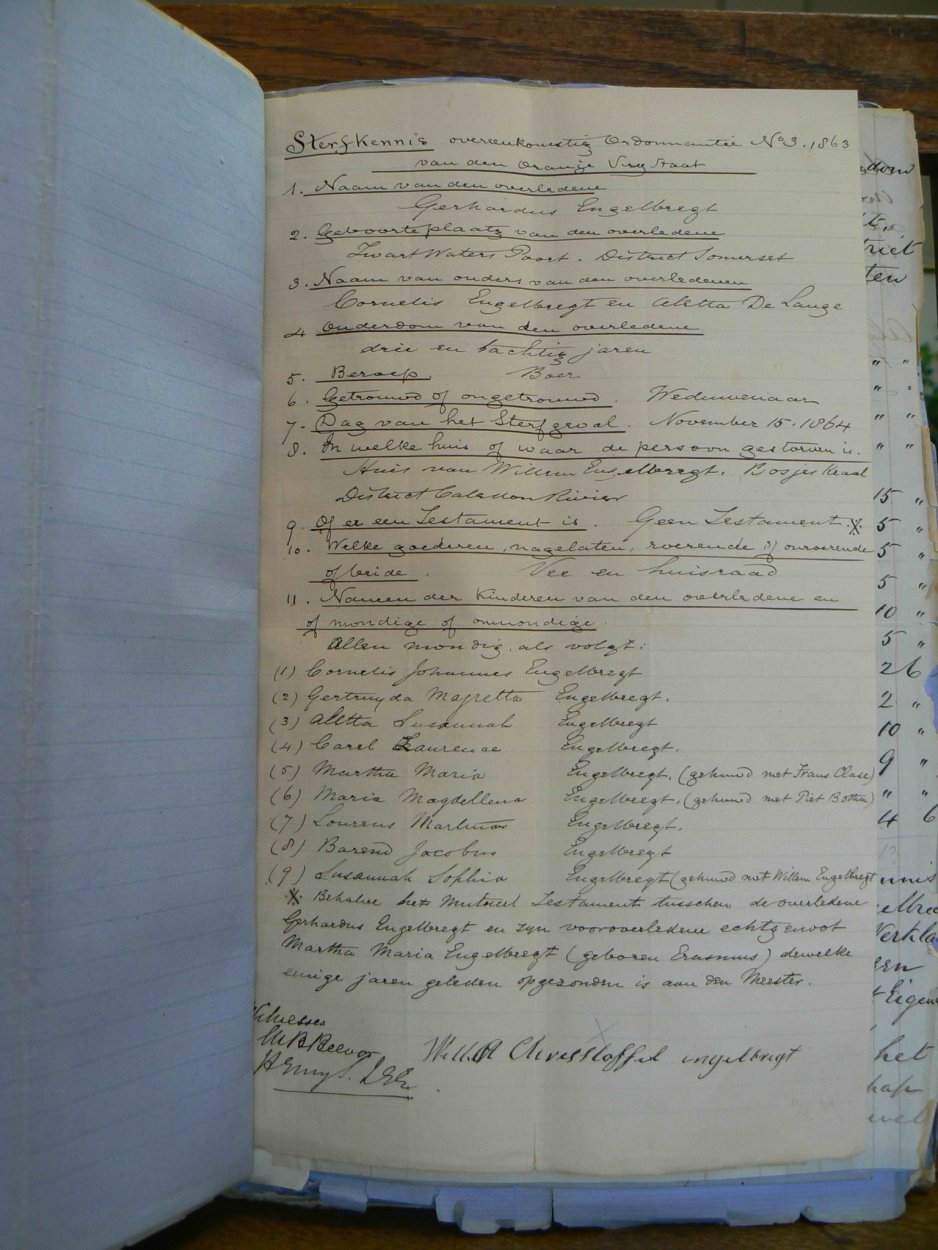 Sterfkennis overeenkomstig Ordonnantie No 3. 1863
van den Oranje Vry Staat
1. Naam van den overledene
Gerhardus Engelbregt
2. Geboorteplaats van den overledene
Zwart Waters Poort. District Somerset
3. Naam van ouders van den overledenen
Cornelis Engelbregt en Aletta De Lange
4 Ouderdom van den overledene
drie en tachtig jaren
5. Beroep. Boer
6. Getrouwd of ongetrouwd. Weduwenaar
7. Dag van het Sterfgeval. November 15. 1864
8. In welke huis of waar de persoon gestorven is.
Huis van Willem Engelbregt. Bosjes Kraal
District Caledon Rivier
9. Of er een Testament is. Geen Testament. X
10. Welke goederen, nagelaten, roerende of onroerende
of beide. Vee en huisraad
11. Namen der Kinderen van den overledene en
of mondige of onmondige.
Allen mondig. als volgt:
(1) Cornelis Johannes Engelbregt
(2) Gertruyda Engelbregt.
(3) Aletta Susannah Engelbregt
(4) Carel Laurence Engelbregt.
(5) Martha Maria Engelbregt. (gehuwd met Frans Clase)
(6) Maria Magdellena Engelbregt. (gehuwd met Piet Botha)
(7) Lourens Marthinus Engelbregt.
(8) Barend Jacobus Engelbregt
(9) Susannah Sophia Engelbregt (gehuwd met Willem Engelbregt
X Behalve het Mutueel Testament tusschen de overledene
Gerhardus Engelbregt en zyn vooroverledene echtgenoot
Martha Maria Engelbregt (geboren Erasmus) dewelke
eenige jaren geleden opgezonden is aan den Meester.
Witnesses
Willem Christoffel engelbregt